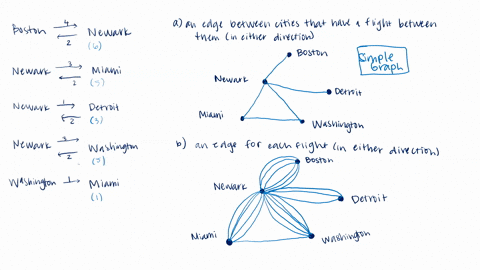 Boston 4 Newark
2 (6)
Newark 3 Miami
2 (5)
Newark 1 Detroit
2 (3)
Newark 3 Washington
2 (5)
Washington 1 Miami
(1)
a) an edge between cities that have a flight between
them (in either direction)
Simple
Graph
Boston
Newark
Detroit
Miami
Washington
b) an edge for each flight (in either direction)
Boston
Newark
Detroit
Miami
Washington